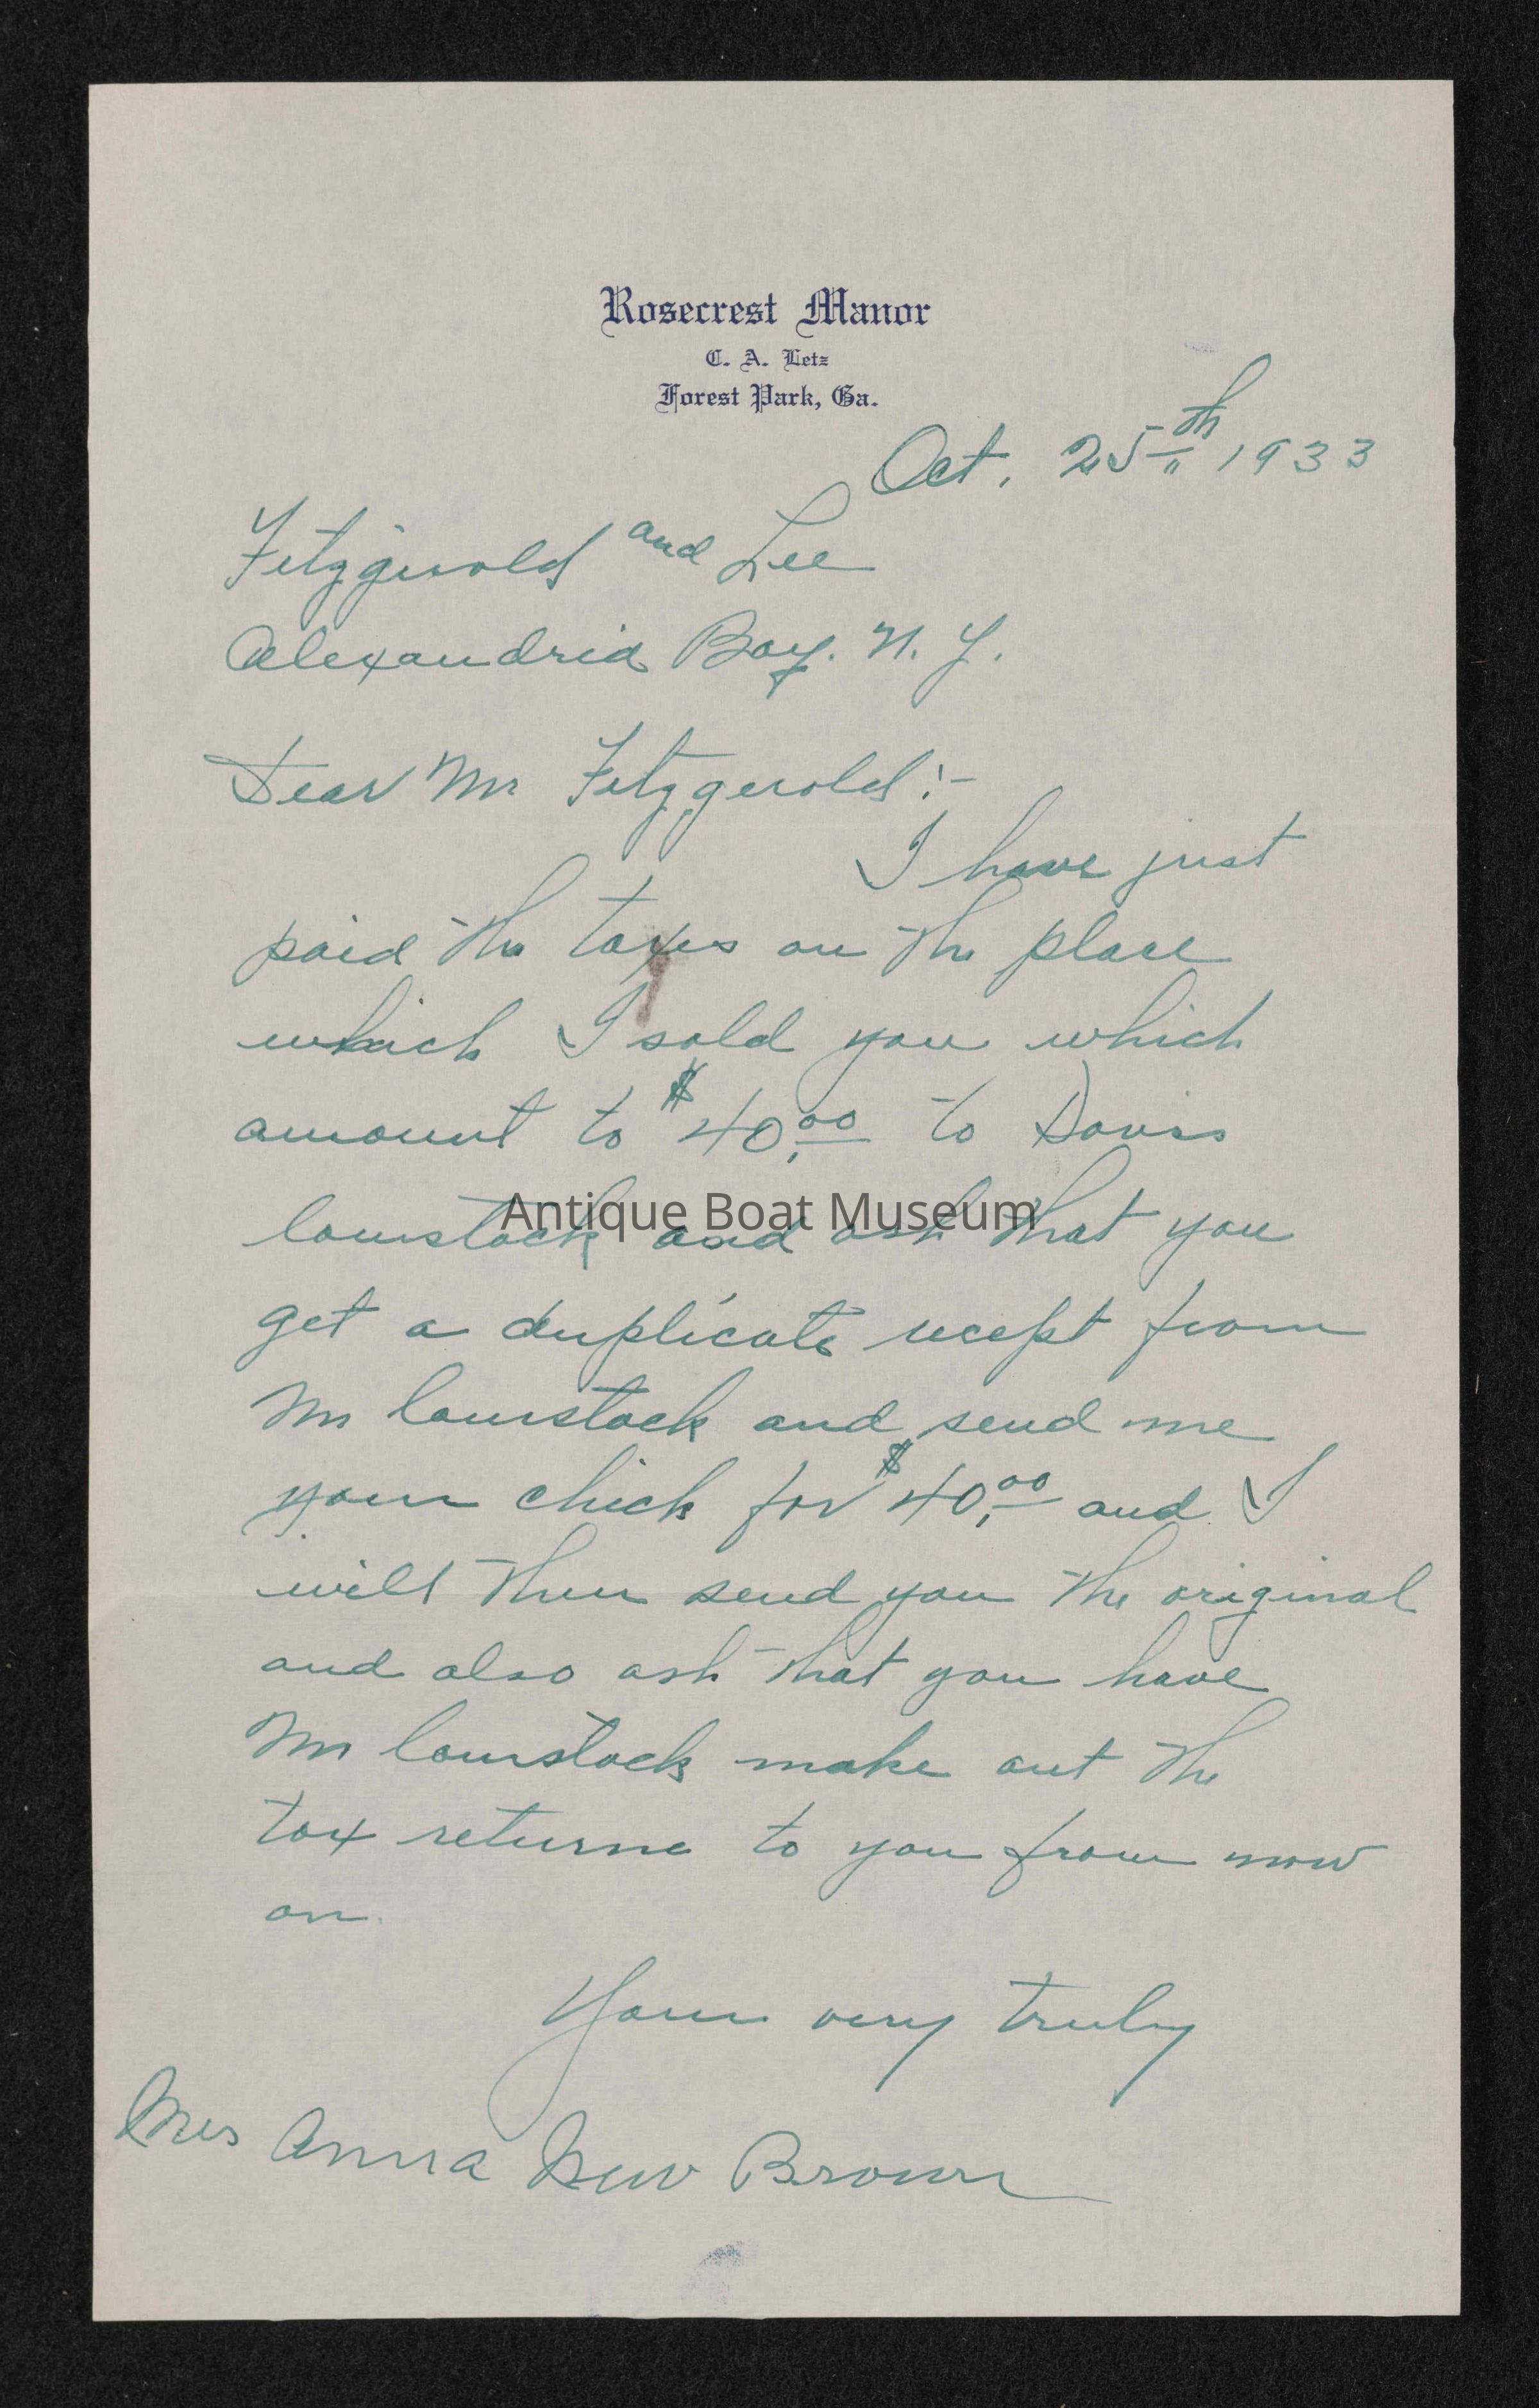 Rosecrest Manor
C. A. Letz
Forest Park, Ga.
Oct. 25th 1933
Fitzgerold and Lee
Alexandria Bay. N. Y.
Dear Mr Fitzgerold:-
I have just
paid the taxes on the place
which I sold you which
amount to $40.00 to
and ask that you
Antique Boat Museum
get a duplicate recept from
Mr and send me
your check for $40.00 and I
will then send you the original
and also ask that you have
Mr make out the
tax returns to you from now
on.
Yours very truly
Mrs Anna New Brown